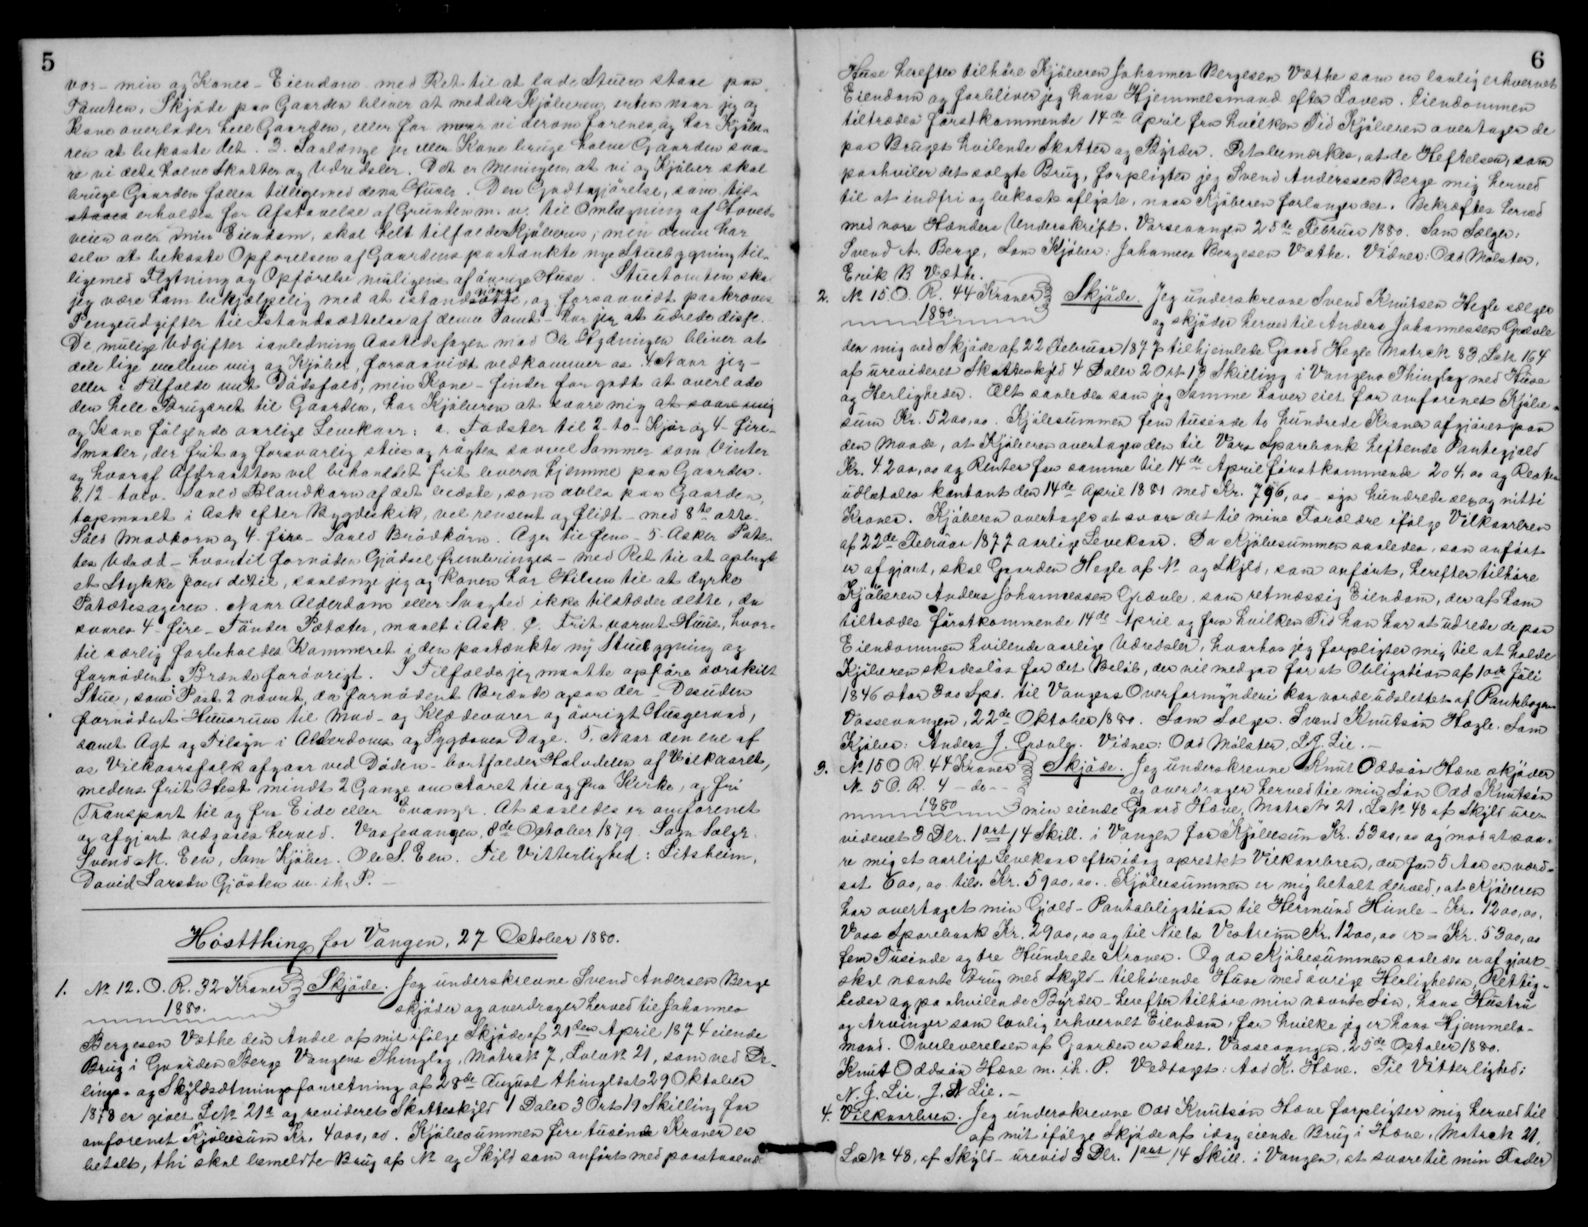 5
vor - min og Kones - Eiendom med Ret til at lade Stuen staae paa
Tomten. Skjöde paa Gaarden bliver at meddele Kjöberen, enten naar jeg og
Kone overlader hele Gaarden, eller för naar vi derom forenes, og har Kjöbe-
ren at bekoste det. 3. Saalænge jeg eller Kone bruge halve Gaarden sva-
re vi dets halve Skatter og Udredsler. Det er Meningen, at vi og Kjöber skal
bruge Gaarden fælles tilligemed dens Huse. Den Godtgjörelse, som til-
staaes erholdes for Afstaaelse af Grunden m. v. til Omlægning af Hoved-
veien over min Eiendom, skal helt tilfalde Kjöberen, men denne har
selv at bekoste Opförelsen af Gaardens paatænkte nye Stuebygning til-
ligemed Flytning og Opförelse muligens af övrige Huse. Stuetomten skal
jeg være ham behjælpelig med at istandsætte, og forsaavidt paakræves
Pengeudgifter til Istandsættelse af denne Tomt har jeg at udrede disse.
De mulige Udgifter i anledning Aastedssagen med Ole Gjerdingen bliver at
dele lige mellem mig og Kjöber, forsaavidt vedkommer os. 4. Naar jeg -
eller i Tilfælde mit Dödsfald, min Kone - finder for godt at overlade
den hele Brugsret til Gaarden, har Kjöberen at svare mig at svare mig
og Kone fölgende aarlige Levekaar: a. Fodster til 2 - to - Kjör og 4 - fire -
Smaler, der frit og forsvarlig steies og rögtes saavel Sommer som Vinter
og hvoraf Afdraatten vel behandlet frit leveres hjemme paa Gaarden.
b. 12 - tolv - Saald Blandkorn af det bedste, som avles paa Gaarden,
topmaalt i Ask efter Bygdeskik, vel renset og flidt - med 8 te otte -
Saald Madkorn og 4 - fire - Saald Brödkorn. Ager til fem - 5 - Asker Pote-
ter Udsæd - hvortil fornöden Gjödsel frembringes - med Ret til at oplægge
et Stykke Jord dertil, saalænge jeg og Konen har Helsen til at dyrke
Potetesageren. Naar Alderdom eller Svaghed ikke tilstæder dette, da
svares 4 - fire - Tönder Potæter, maalt i Ask. c. Frit varmt Huus, hvor-
til særlig forbeholdes Kammeret i den paatænkte ny Stuebygning og
fornödent Brænde forövrigt. I Tilfælde jeg maatte opföre særskilt
Stue, som i Post 2 nævnt, da fornödent Brænde ogsaa der - Desuden
fornödent Huusrum til Mad - og Klædevarer og övrigt Husgeraad,
samt Agt og Tilsyn i Alderdoms og Sygdoms Dage. 5. Naar den ene af
os Vilkaarsfolk afgaar ved Döden - bortfalder Halvdelen af Vilkaaret,
medens frit Hest mindst 2 Gange om Aaret til og fra Kirke, og fri
Transport til og fra Eide eller Evanger. At saaledes er omforenet
og afgjort vedgaaes herved. Vossevangen, 8de October 1879. Som Sælger.
Svend M. Een, Som Kjöber. Ole S. Een. Til Vitterlighed: Sitsheim,
David Larsen Gjösten m. ih. P. -
Höstthing for Vangen, 27 October 1880.
1. No 12. O. R. 32 Kroner Skjöde. Jeg underskrevne Svend Andersen Berge
1880. skjöder og overdrager herved til Johannes
Bergesen Væthe den Andel af mit ifölge Skjöde af 21den April 1874 eiende
Brug i Gaarden Berge Vangens Thinglag, Matr No 7, Löbe No 21, som ved De-
lings- og Skyldsætningsforretning af 28de August thinglæst 29 Oktober
1878 er givet L No 21a og revideret Skatteskyld 1 Daler 3 Ort 19 Skilling for
omforenet Kjöbesum Kr. 4000,00. Kjöbesummen fire tusinde Kroner er
betalt, thi skal bemeldte Brug af No og Skyld som anfört med paastaaende
6
Huse herefter tilhöre Kjöberen Johannes Bergesen Væthe som en lovlig erhvervet
Eiendom og forbliver jeg hans Hjemmelsmand efter Loven. Eiendommen
tiltrædes förstkommende 14de April fra hvilken Tid Kjöberen overtager de
paa Bruget hvilende Skatter og Byrder. Det bemærkes, at de Heftelser, som
paahviler det solgte Brug, forpligter jeg Svend Anderssen Berge mig herved
til at indfri og bekoste aflyste, naar Kjöberen forlanger det. Bekræftes herved
med vore Hænders Underskrift. Vossevangen 25de Februar 1880. Som Sælger:
Svend A. Berge, Som Kjöber: Johannes Bergesen Væthe. Vidner: Odd Mölster.
Erik B Væthe.
2. No 15 O. R. 44 Kroner Skjöde. Jeg underskrevne Svend Knutsen Hegle sælger
1880 og skjöder herved til Anders Johannessen Grövle
den mig ved Skjöde af 22 Februar 1877 tilhjemlede Gaard Hegle Matr No 83, L No 164
af urevideret Skatteskyld 4 Daler 2 Ort 13 Skilling i Vangens Thinglag med Huse
og Herligheder. Alt saaledes som jeg samme haver eiet for omforenet Kjöbe-
sum Kr. 5200,00. Kjöbesummen fem tusinde to hundrede Kroner afgjöres paa
den Maade, at Kjöberen overtager den til Voss Sparebank heftende Pantegjæld
Kr. 4200,00 og Renter for samme til 14de April förstkommende 204,00 og Resten
udbetales kontant den 14de April 1881 med Kr. 796,00 - syv hundrede sex og nitti
Kroner. Kjöberen overtager at svare det til mine Forældre ifölge Vilkaarbrev
af 22de Februar 1877 aarlige Levekaar. Da Kjöbesummen saaledes, som anfört
er afgjort, skal Gaarden Hegle af No og Skyld, som anfört, herefter tilhöre
Kjöberen Anders Johannessen Grövle, som retmæssig Eiendom, der af ham
tiltrædes förstkommende 14de April og fra hvilken Tid han har at udrede de paa
Eiendommen hvilende aarlige Udredsler, hvorhos jeg forpligter mig til at holde
Kjöberen skadeslös for det Belöb, der vil medgaa for at Obligation af 10de Juli
1846 stor 300 Spd. til Vangens Overformynderi kan vorde udslettet af Pantebogen.
Vossevangen, 22de Oktober 1880. Som Sælger. Svend Knutsön Hegle. Som
Kjöber: Anders J. Grövle. Vidner: Odd Mölster, L. J. Lie. -
3. No 15 O R 44 Kroner Skjöde. Jeg underskrevne Knut Oddsön Hæve skjöder
No 5 O. R. 4 - do - og overdrager herved til min Sön Odd Knutsön
1880 min eiende Gaard Hæve, Matr No 21, L No 48 af Skyld ure-
videret 3 Dlr. 1 ort 14 Skill. i Vangen for Kjöbesum Kr. 5300,00 og mod at sva-
re mig et aarligt Levekaar efter idag oprettet Vilkaarbrev, der for 5 Aar er værd-
sat 600,00 tils. Kr. 5900,00. Kjöbesummen er mig betalt derved, at Kjöberen
har overtaget min Gjæld - Pantobligation til Hermund Hunle - Kr. 1200,00.
Voss Sparebank Kr. 2900,00 og til Niels Vestreim Kr. 1200,00 = Kr. 5300,00
fem Tusinde og tre Hundrede Kroner. Og da Kjöbesummen saaledes er afgjort -
skal nævnte Brug med Skyld - tilhörende Huse med övrige Herligheder, Rettig-
heder og paahvilende Byrder - herefter tilhöre min nævnte Sön, hans Hustru
og Arvinger som lovlig erhvervet Eiendom, for hvilke jeg er hans Hjemmels-
mand. Overleverelsen af Gaarden er skeet. Vossevangen, 25de October 1880.
Knut Oddsön Hæve m. ih. P. Vedtaget: Aad K. Hæve. Til Vitterlighed:
N. J. Lie. J. A Lie. -
4. Vilkaarbrev. Jeg underskrevne Odd Knutsön Hæve forpligter mig herved til
af mit ifölge Skjöde af idag eiende Brug i Hæve, Matr No 21,
L No 48, af Skyld - urevid 3 Dlr. 1 ort 14 Skill. i Vangen, at svare til min Fader